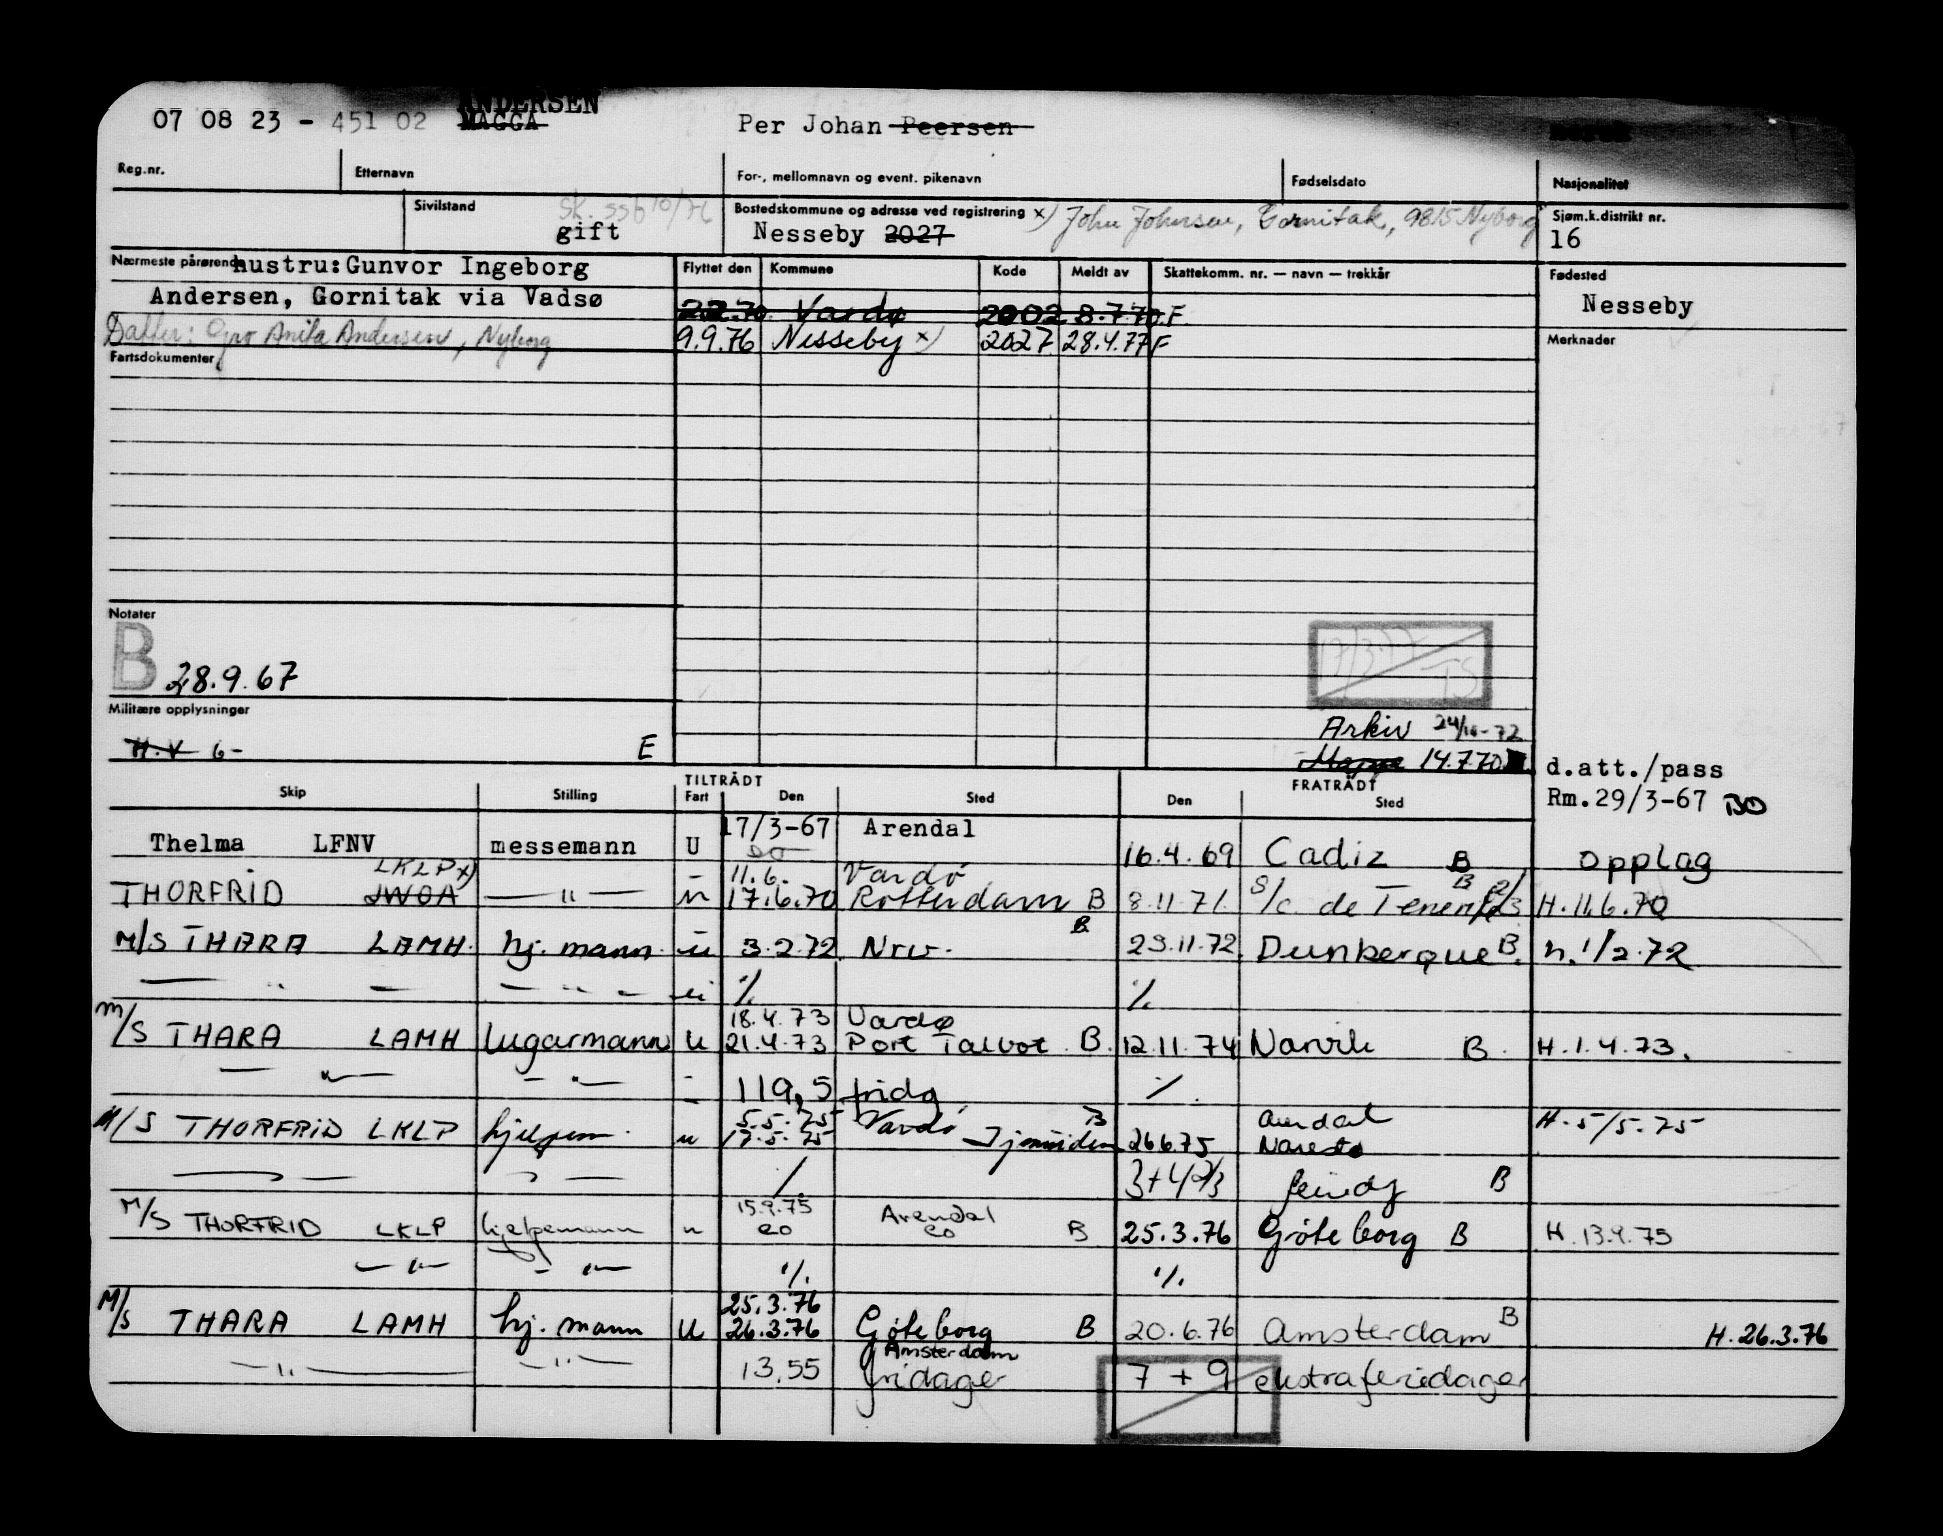 ANDERSEN
07 08 23 - 451 02 MAGGA Per Johan Peersen norsk
Reg.nr. Etternavn For-, mellomnavn og event. pikenavn Fødselsdato Nasjonalitet
Sivilstand sk. ssb 10/76 Bostedskommune og adresse ved registrering x) John Johnsen, Gornitak, 9815 Nyborg Sjøm.k.distrikt nr.
gift Nesseby 2027 16
Nærmeste pårørende hustru: Gunvor Ingeborg Flyttet den Kommune Kode Meldt av Skattekomm. nr. — navn — trekkår Fødested
Andersen, Gornitak via Vadsø Vardø 2002 8.7.70.F. Nesseby
Datter: Gro Anita Andersen, Nyborg 9.9.76 Nesseby x) 2027 28.4.77F Merknader
Fartsdokumenter
Notater
B 28.9.67 17/3-77 TS
Militære opplysninger Arkiv 24/10-72
H.V 6- E Mappe 14.7.70 d.att./pass
Skip Stilling TILTRÅDT Fart Den Sted FRATRÅDT Den Sted Rm.29/3-67 BO
Thelma LFNV messemann U 17/3-67 Arendal 16.4.69 Cadiz B Opplag
LKLP x) 11.6. Vardø B
THORFRID JWOA — " — u 17.6.70 Rotterdam B 8.11.71. S/c. de Tenerife H.11.6.70
M/S THARA LAMH. hj. mann u 3.2.72 Nrw. B 23.11.72. Dunkerque B. h. 1/2.72
— " — — " — u % %
18.4.73 Vardø
M/S THARA LAMH lugarmann u 21.4.73 Port Talbot B. 12.11.74 Narvik B. H.1.4.73.
— " — — " — - 119,5 fridg. %
5.5.75 Vardø B Arendal H.5/5.75
M/S THORFRID LKLP hjelpem. u 17.5.75 Ijmuiden 26.6.75 Narestø
— " — — " — % 3+4 2/3 feridg B
15.9.75 Arendal
M/S THORFRID LKLP hjelpemann u eo eo B 25.3.76 Gøteborg B H.13.9.75
— " — — " — % %
25.3.76
M/S THARA LAMH hj. mann u 26.3.76 Gøteborg B 20.6.76 Amsterdam B H.26.3.76
Amsterdam
— " — — " — 13,55 fridager 7 + 9 ekstraferiedager